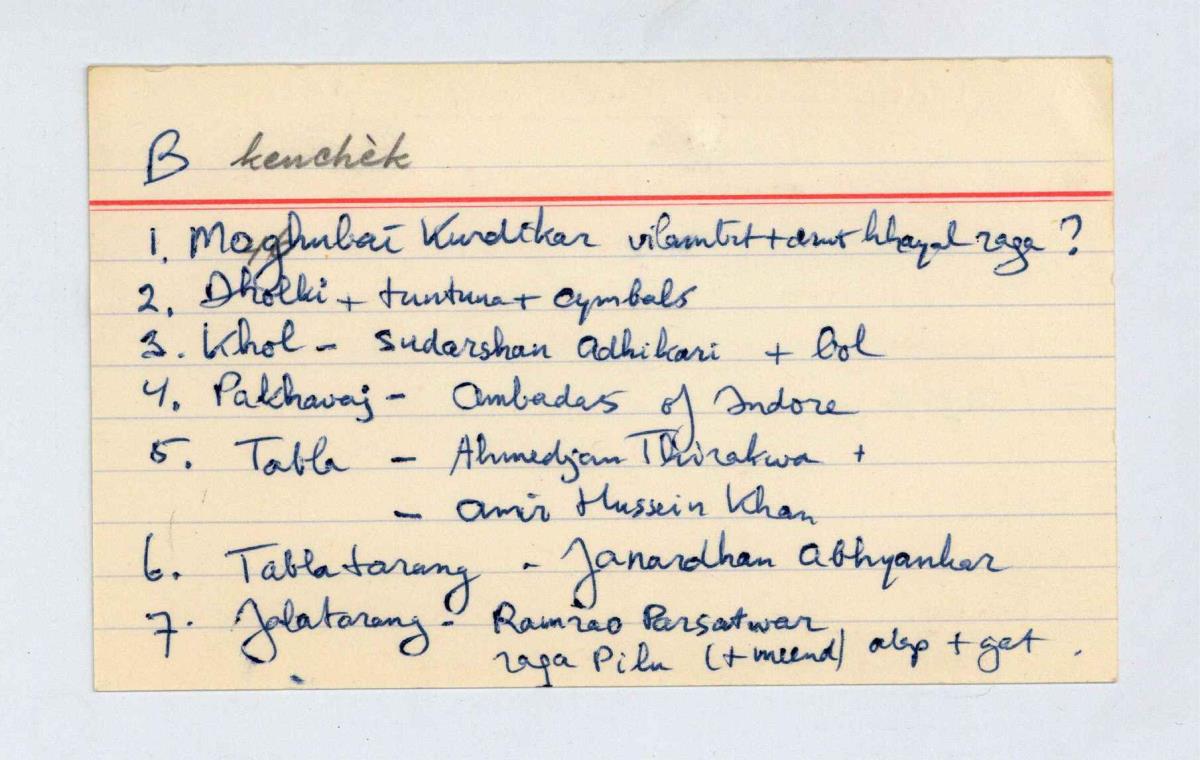 B kenchèk
1. Moghubai Kurdikar vilambit + drut khayal raga ?
2. Dholki + tuntuna + cymbals
3. Khol - Sudarshan Adhikari + bol
4. Pakhavaj - Ambadas of Indore
5. Tabla - Ahmedjan Thirakwa +
- Amir Hussein Khan
6. Tablatarang - Janardhan Abhyankar
7. Jalatarang - Ramrao Parsatwar
raga Pilu (+ meend) alap + gat .